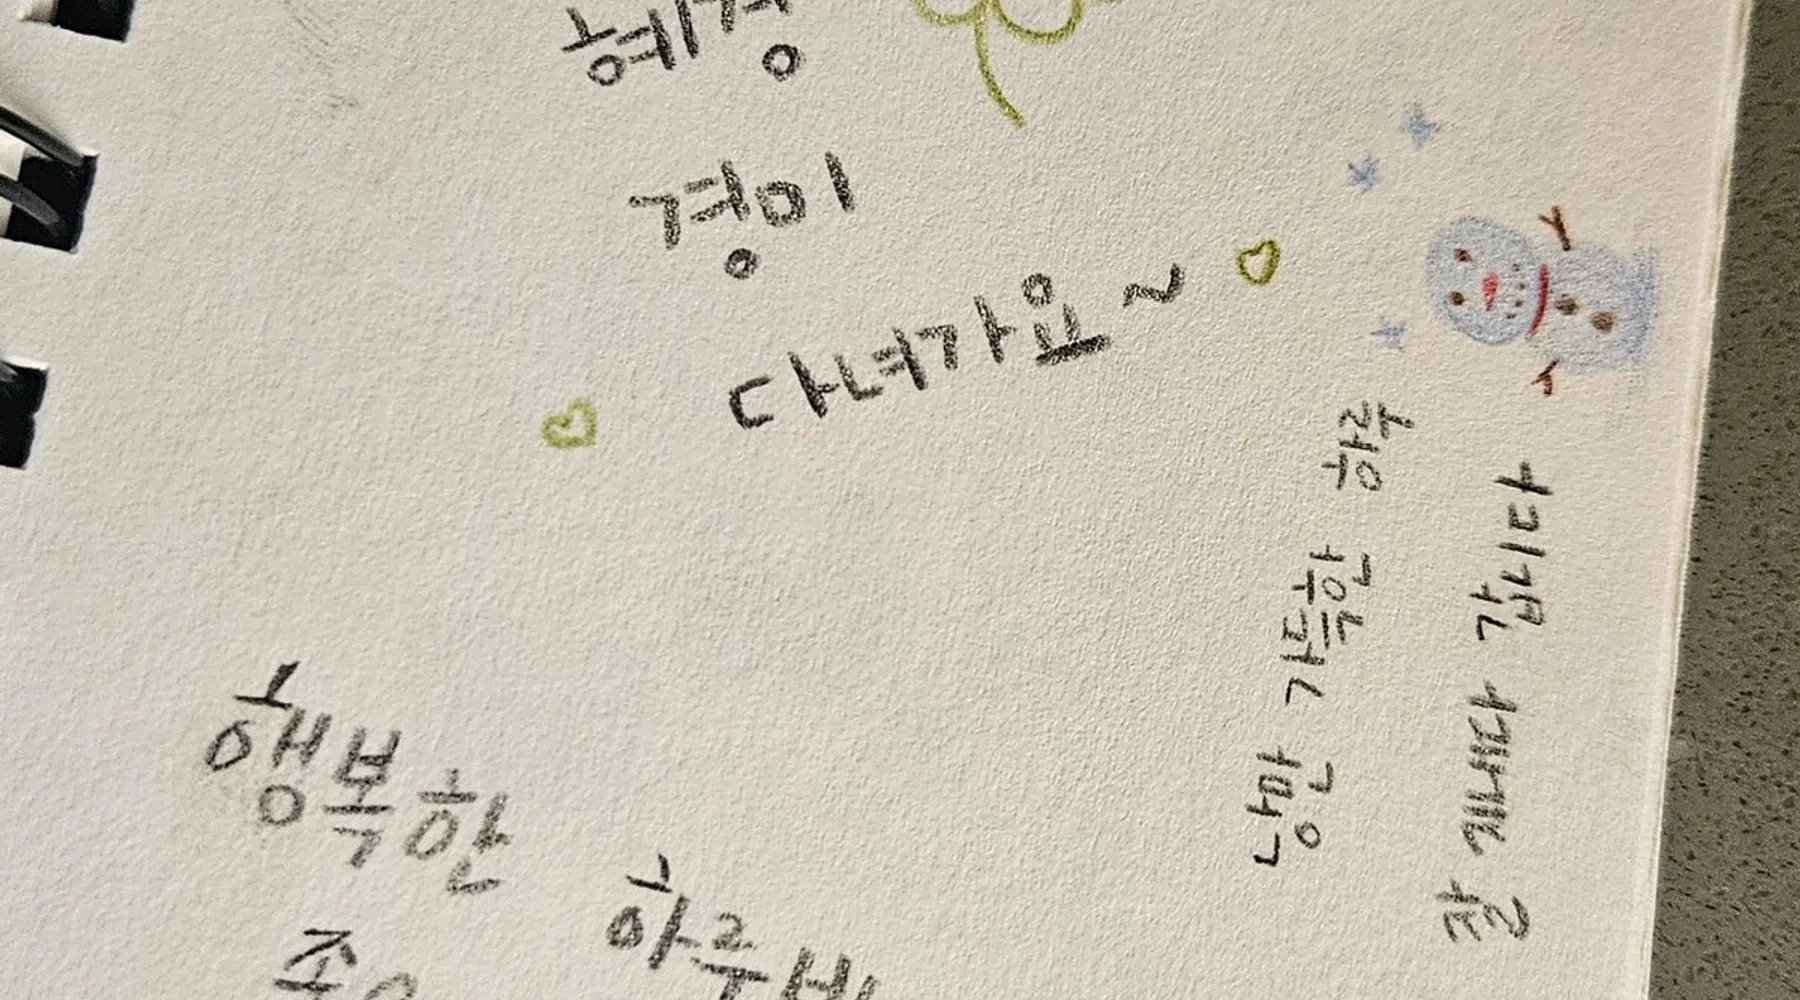 혜경
경미
다녀가요~
낭만 가득한 하루
잘 갑니다
행복한
하루